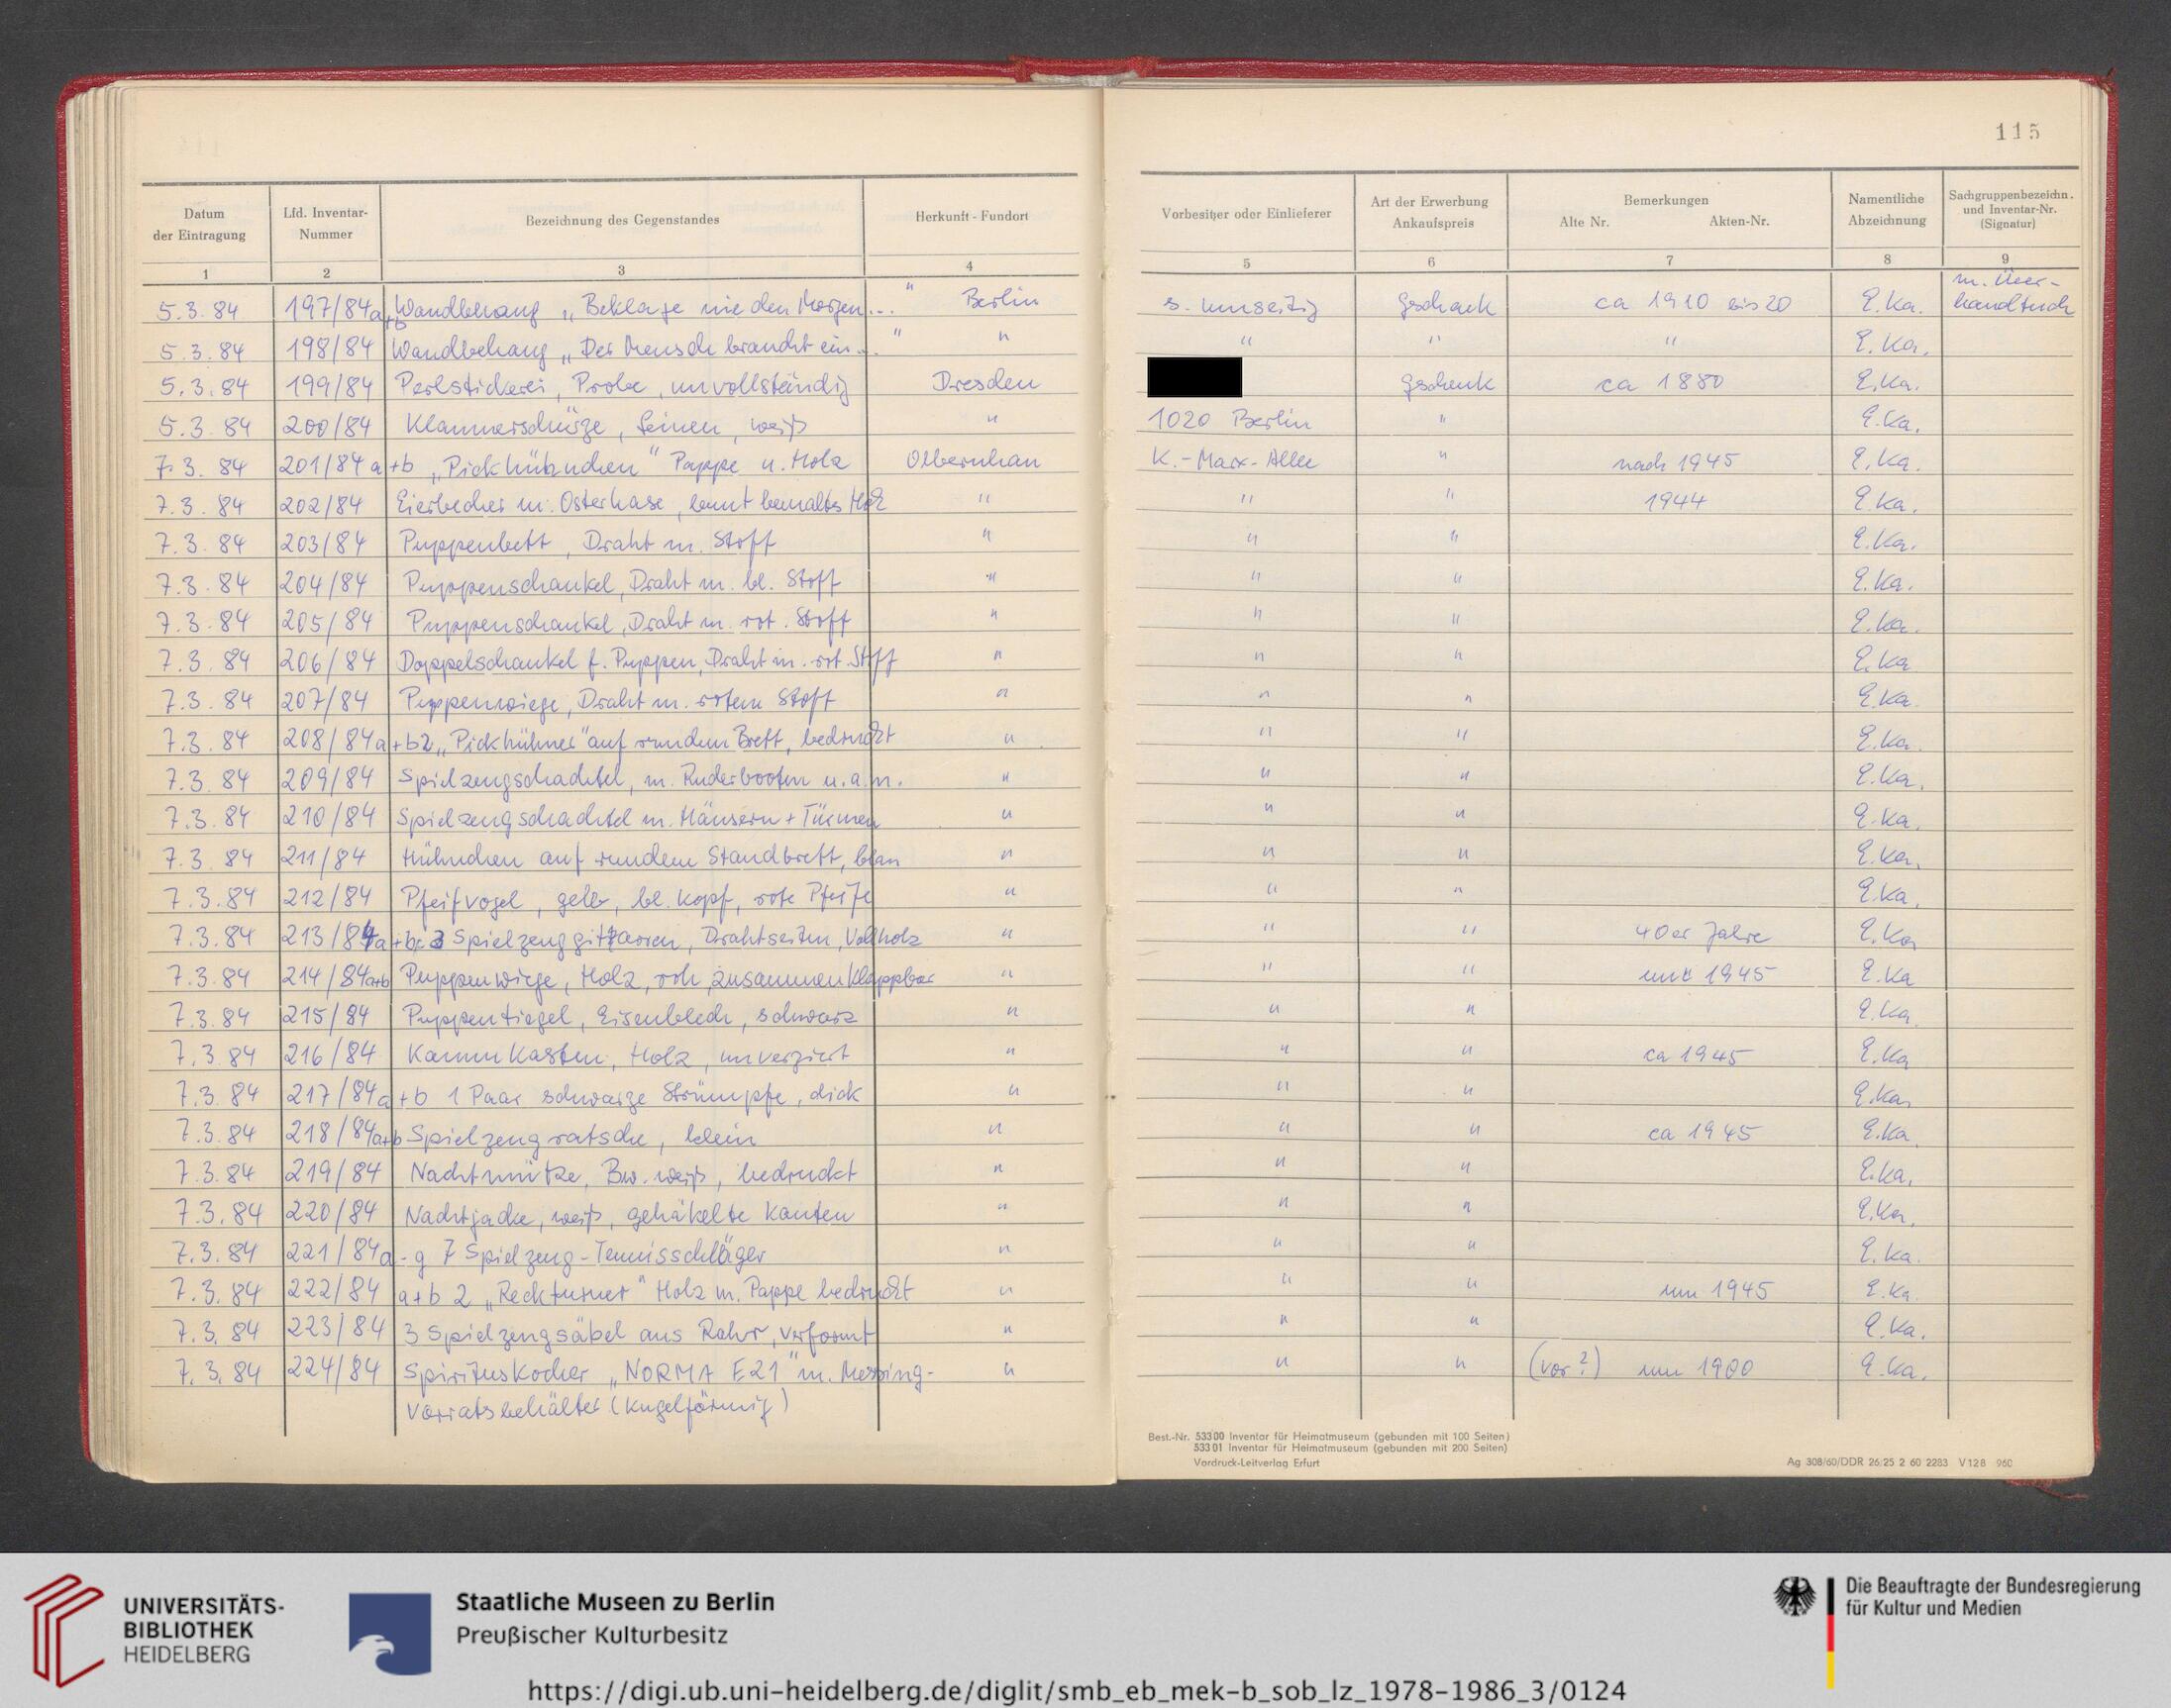 115
Datum der Eintragung | Lfd. Inventar-Nummer | Bezeichnung des Gegenstandes | Herkunft - Fundort | Vorbesitzer oder Einlieferer | Art der Erwerbung Ankaufspreis | Bemerkungen Alte Nr. Akten-Nr. | Namentliche Abzeichnung | Sachgruppenbezeichn. und Inventar-Nr. (Signatur)
1 | 2 | 3 | 4 | 5 | 6 | 7 | 8 | 9
5.3.84 | 197/84a+b | Wandbehang „Beklage nie den Morgen..." | Berlin | s. umseitig | Geschenk | ca 1910 bis 20 | E.Ka. | handtuch
5.3.84 | 198/84 | Wandbehang „Der Mensch braucht ein..." | " | " | " | " | E.Ka.
5.3.84 | 199/84 | Perlstickerei, Probe, unvollständig | Dresden | Geschenk | ca 1880 | E.Ka.
5.3.84 | 200/84 | Klammerschürze, Leinen, weiß | " | 1020 Berlin | " | E.Ka.
7.3.84 | 201/84 a+b | „Pickhühnchen" Pappe u. Holz | Olbernhau | K.-Marx-Allee | " | nach 1945 | E.Ka.
7.3.84 | 202/84 | Eierbecher m. Osterhase, bunt bemaltes Holz | " | " | " | 1944 | E.Ka.
7.3.84 | 203/84 | Puppenbett, Draht m. Stoff | " | " | " | E.Ka.
7.3.84 | 204/84 | Puppenschaukel, Draht m. bl. Stoff | " | " | " | E.Ka.
7.3.84 | 205/84 | Puppenschaukel, Draht m. rot. Stoff | " | " | " | E.Ka.
7.3.84 | 206/84 | Doppelschaukel f. Puppen, Draht m. rot Stoff | " | " | " | E.Ka
7.3.84 | 207/84 | Puppenwiege, Draht m. rotem Stoff | " | " | " | E.Ka.
7.3.84 | 208/84a+b | 2 „Pickhühner" auf rundem Brett, bedruckt | " | " | " | E.Ka.
7.3.84 | 209/84 | Spielzeugschachtel, m. Ruderbooten u.a.m. | " | " | " | E.Ka.
7.3.84 | 210/84 | Spielzeugschachtel m. Häusern + Türmen | " | " | " | E.Ka.
7.3.84 | 211/84 | Hühnchen auf rundem Standbrett, blau | " | " | " | E.Ka.
7.3.84 | 212/84 | Pfeifvogel, gelb, bl. Kopf, rote Pfeife | " | " | " | E.Ka.
7.3.84 | 213/84a+b | Spielzeuggitarren, Drahtseiten, Vollholz | " | " | " | 40er Jahre | E.Ka
7.3.84 | 214/84a+b | Puppenwiege, Holz, roh, zusammenklappbar | " | " | " | 1945 | E.Ka
7.3.84 | 215/84 | Puppentiegel, Eisenblech, schwarz | " | " | " | E.Ka.
7.3.84 | 216/84 | Kammkasten, Holz, unverziert | " | " | " | ca 1945 | E.Ka
7.3.84 | 217/84a+b | 1 Paar schwarze Strümpfe, dick | " | " | " | E.Ka.
7.3.84 | 218/84a+b | Spielzeugratsche, klein | " | " | " | ca 1945 | E.Ka.
7.3.84 | 219/84 | Nachtmütze, Bw. weiß, bedruckt | " | " | " | E.Ka.
7.3.84 | 220/84 | Nachtjacke, weiß, gehäkelte Kanten | " | " | " | E.Ka.
7.3.84 | 221/84a-g | 7 Spielzeug-Tennisschläger | " | " | " | E.Ka.
7.3.84 | 222/84 | a+b 2 „Reckturner" Holz m. Pappe bedruckt | " | " | " | um 1945 | E.Ka.
7.3.84 | 223/84 | 3 Spielzeugsäbel aus Rohr, verformt | " | " | " | E.Ka.
7.3.84 | 224/84 | Spirituskocher „NORMA E21" m. Messing- | " | " | " | (vor?) um 1900 | E.Ka.
Vorratsbehälter (kugelförmig)
Best.-Nr. 53300 Inventar für Heimatmuseum (gebunden mit 100 Seiten)
53301 Inventar für Heimatmuseum (gebunden mit 200 Seiten)
Vordruck-Leitverlag Erfurt
Ag 308/60/DDR 26/25 2 60 2283 V128 960
UNIVERSITÄTS-
BIBLIOTHEK
HEIDELBERG
Staatliche Museen zu Berlin
Preußischer Kulturbesitz
Die Beauftragte der Bundesregierung
für Kultur und Medien
https://digi.ub.uni-heidelberg.de/diglit/smb_eb_mek-b_sob_lz_1978-1986_3/0124